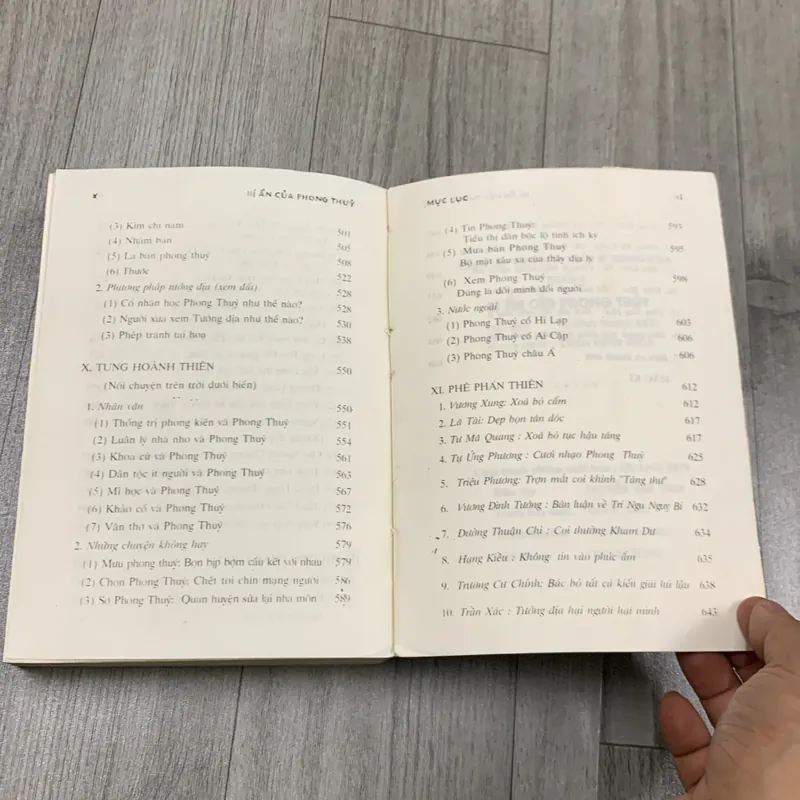 BÍ ẨN CỦA PHONG THUỶ
(3) Kim chỉ nam 501
(4) Nhâm bàn 505
(5) La bàn phong thuỷ 508
(6) Thước 522
2. Phương pháp tướng địa (xem đất) 528
(1) Cổ nhân học Phong Thuỷ như thế nào? 528
(2) Người xưa xem Tướng địa như thế nào? 530
(3) Phép tránh tai hoạ 538
X. TUNG HOÀNH THIÊN 550
(Nói chuyện trên trời dưới biển)
1. Nhân văn 550
(1) Thống trị phong kiến và Phong Thuỷ 551
(2) Luân lý nhà nho và Phong Thuỷ 554
(3) Khoa cử và Phong Thuỷ 561
(4) Dân tộc ít người và Phong Thuỷ 563
(5) Mĩ học và Phong Thuỷ 567
(6) Khảo cổ và Phong Thuỷ 572
(7) Văn thơ và Phong Thuỷ 576
2. Những chuyện không hay 579
(1) Mưu phong thuỷ: Bọn bịp bợm cấu kết với nhau 579
(2) Chọn Phong Thuỷ: Chết tới chín mạng người 586
(3) Sợ Phong Thuỷ: Quan huyện sửa lại nha môn 589
MỤC LỤC
(4) Tin Phong Thuỷ: 593
Tiểu thị dân bộc lộ tính ích kỷ
(5) Mua bán Phong Thuỷ 595
Bộ mặt xấu xa của thầy địa lý
(6) Xem Phong Thuỷ 598
Đúng là dối mình dối người
3. Nước ngoài
(1) Phong Thuỷ cổ Hi Lạp 603
(2) Phong Thuỷ cổ Ai Cập 606
(3) Phong Thuỷ châu Á 606
XI. PHÊ PHÁN THIÊN 612
1. Vương Xung: Xoá bỏ cấm 612
2. Lã Tài: Dẹp bọn tán dóc 617
3. Tư Mã Quang: Xoá bỏ tục hậu táng 617
4. Tự Ủng Phương: Cười nhạo Phong Thuỷ 625
5. Triệu Phương: Trợn mắt coi khinh "Táng thư" 628
6. Vương Đình Tướng: Bàn luận về Tri Ngu Nguỵ Bỉ 632
7. Đường Thuận Chi: Coi thường Kham Dư 634
8. Hạng Kiều: Không tin vào phúc ấm 635
9. Trương Cư Chính: Bác bỏ tất cả kiến giải hủ lậu 638
10. Trần Xác: Tướng địa hại người hại mình 643